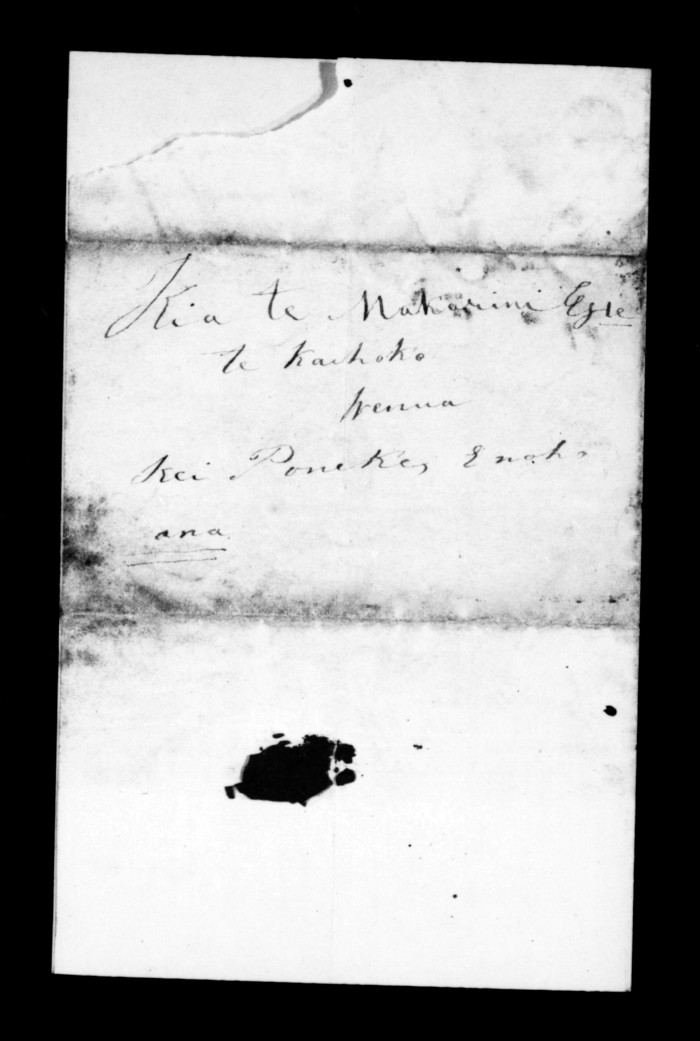 Kia te Makarini Esqre
te Kaihoko
Wenua
Kei Poneke, Enoh
ana